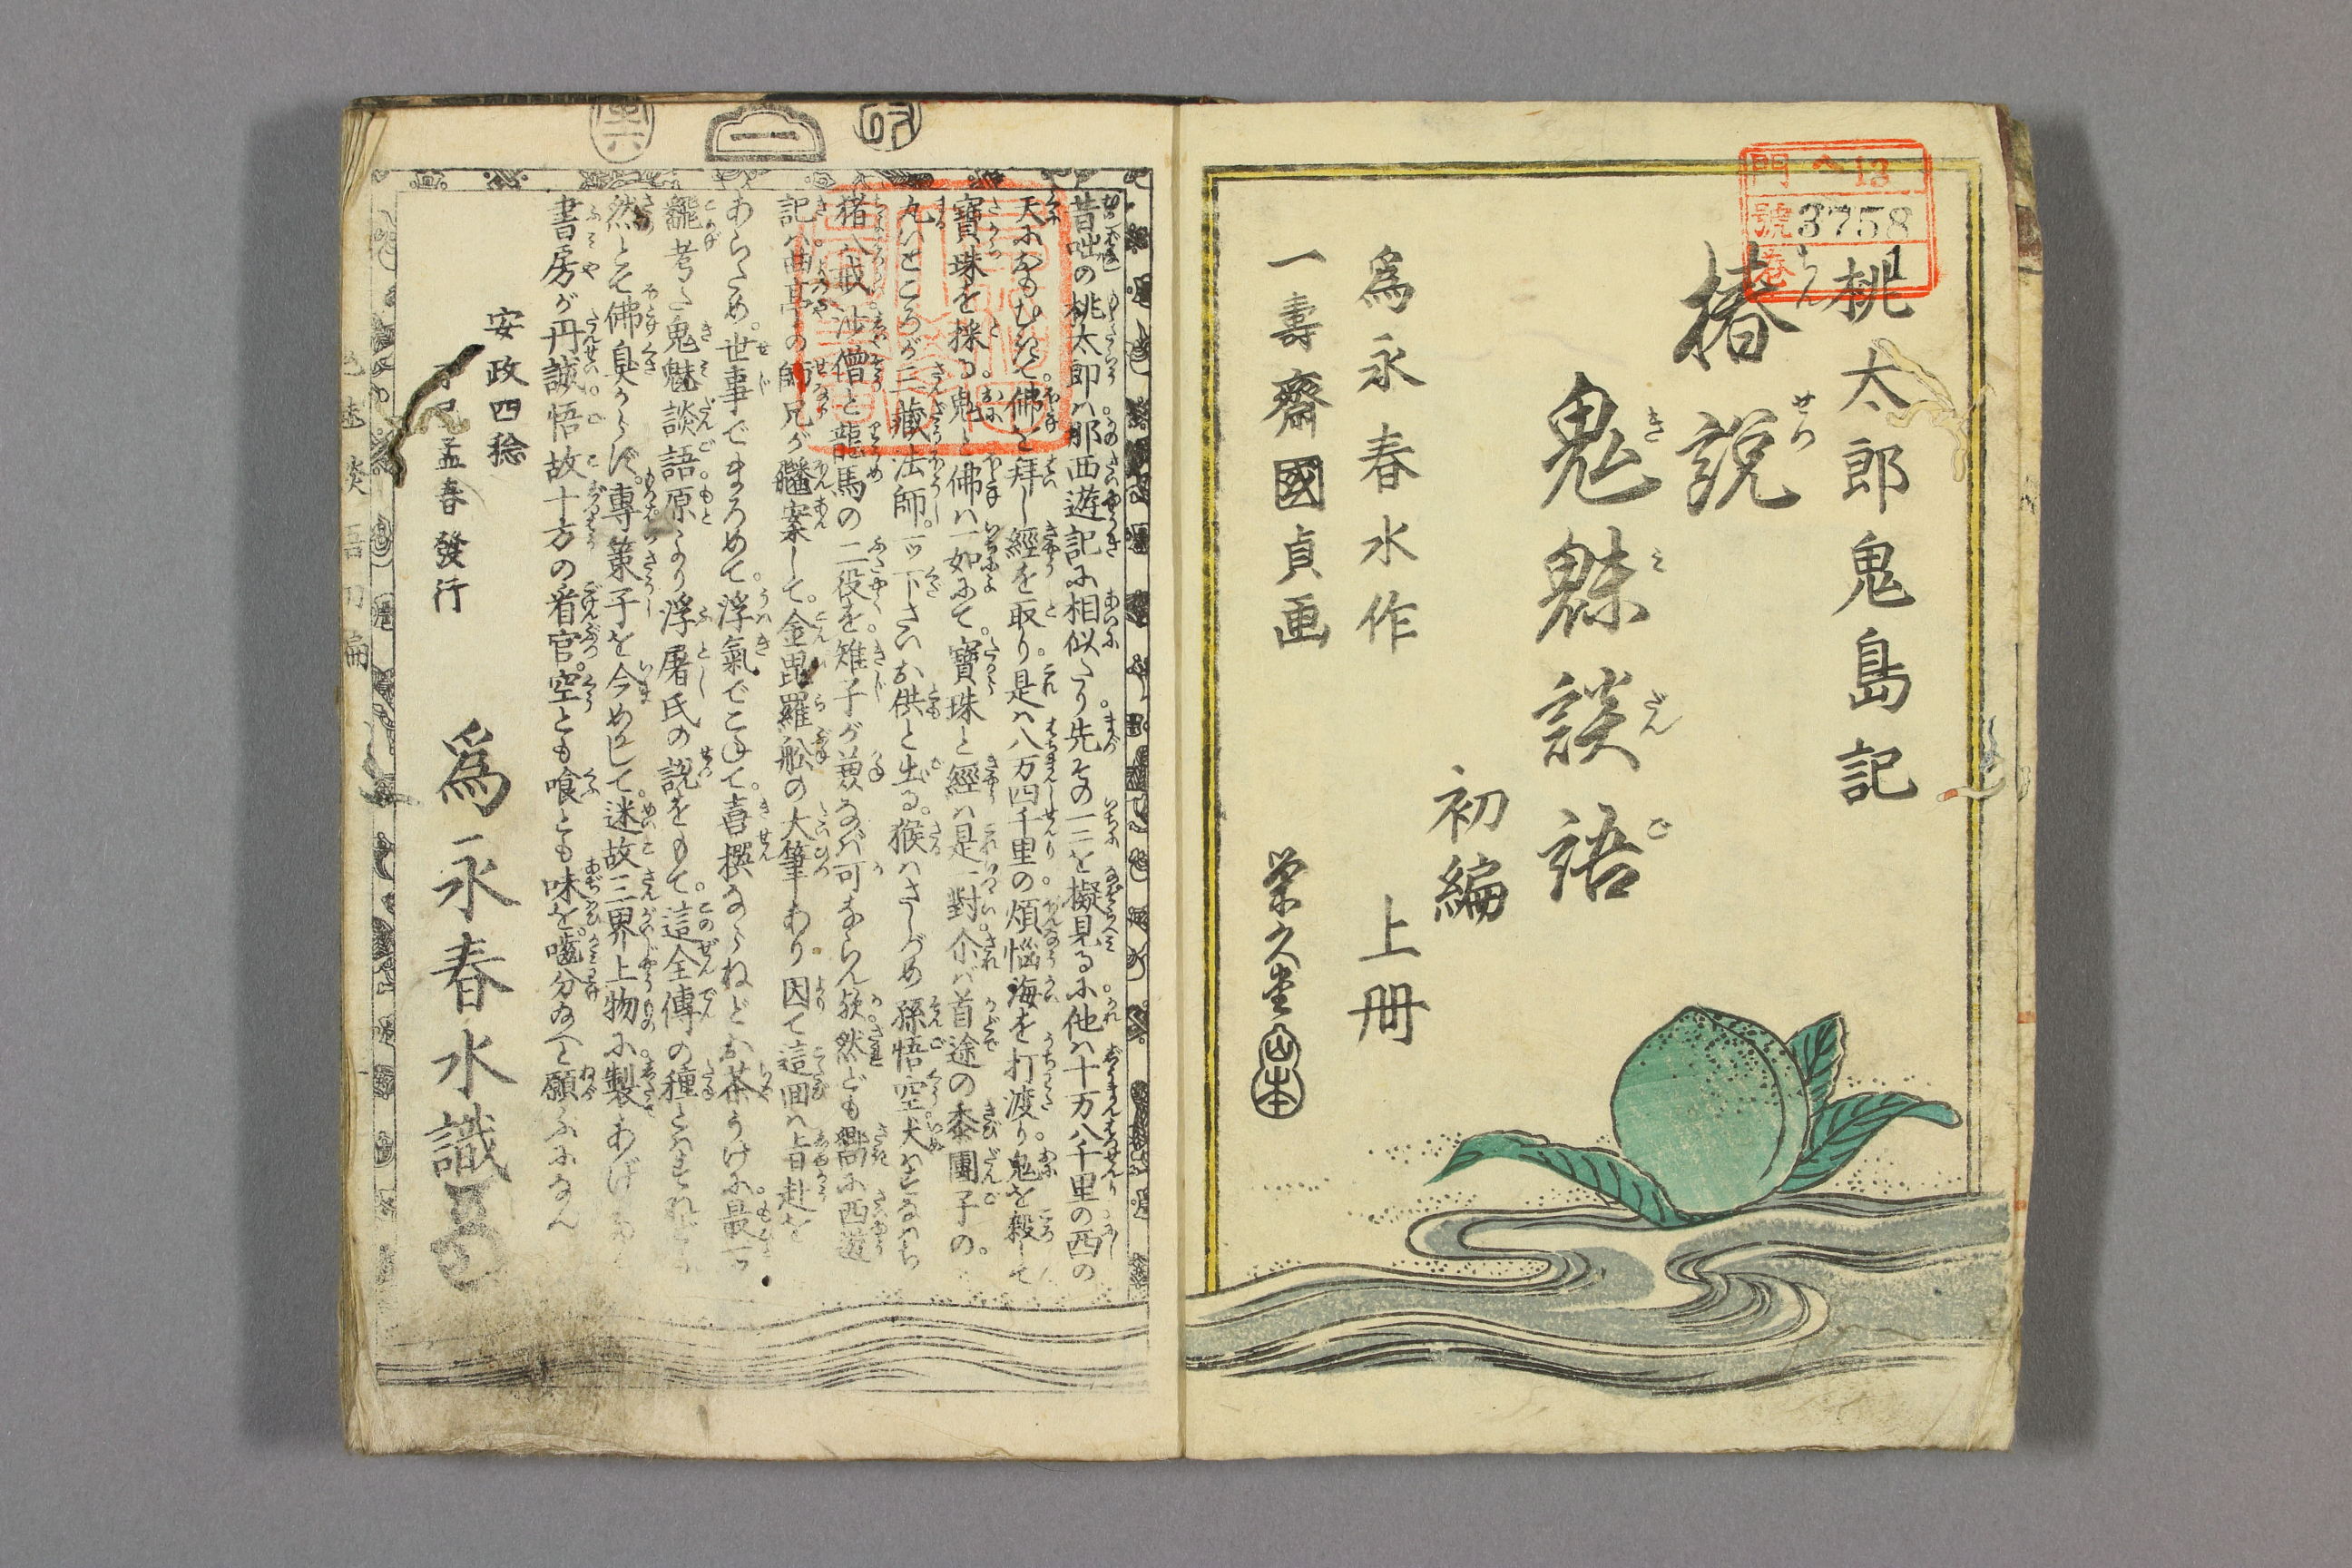 門 ヘ13
號 3758
卷 1
桃太郎鬼島記
椿説
ちんせつ
鬼魅談語
きみだんご
初編
上冊
爲永春水作
一壽齋國貞画
栄久堂
山本
昔咄の桃太郎ハ那西遊記に相似たり先その一二を擬見るに他ハ十万八千里の西の
天におもむきて佛を拜し經を取り是ハ八万四千里の煩悩海を打渡り鬼を殺して
寶珠を採る鬼と佛ハ一如にて寶珠と經ハ是一對尒バ首途の黍團子の
丸いところが三藏法師一ツ下さいお供と出る猴ハさしづめ孫悟空犬ハすなはち
猪八戒沙僧と龍馬の二役を雉子が兼なバ可ならん歟然ども嚮に西遊
記ハ曲亭の師兄が飜案して金毘羅舩の大筆あり因て這回ハ旨趣を
あらため世事でまろめて浮氣でこねて喜撰ならねどお茶うけに最一ツ
鬼魅談語原より浮屠氏の説をもて這全傳の種と
然とて佛臭からず專策子を今めかして迷故三界上物に製あげ
書房が丹誠悟故十方の看官空とも喰とも味を噛分給へと願ふになん
安政四稔
丁巳孟春發行
爲永春水識